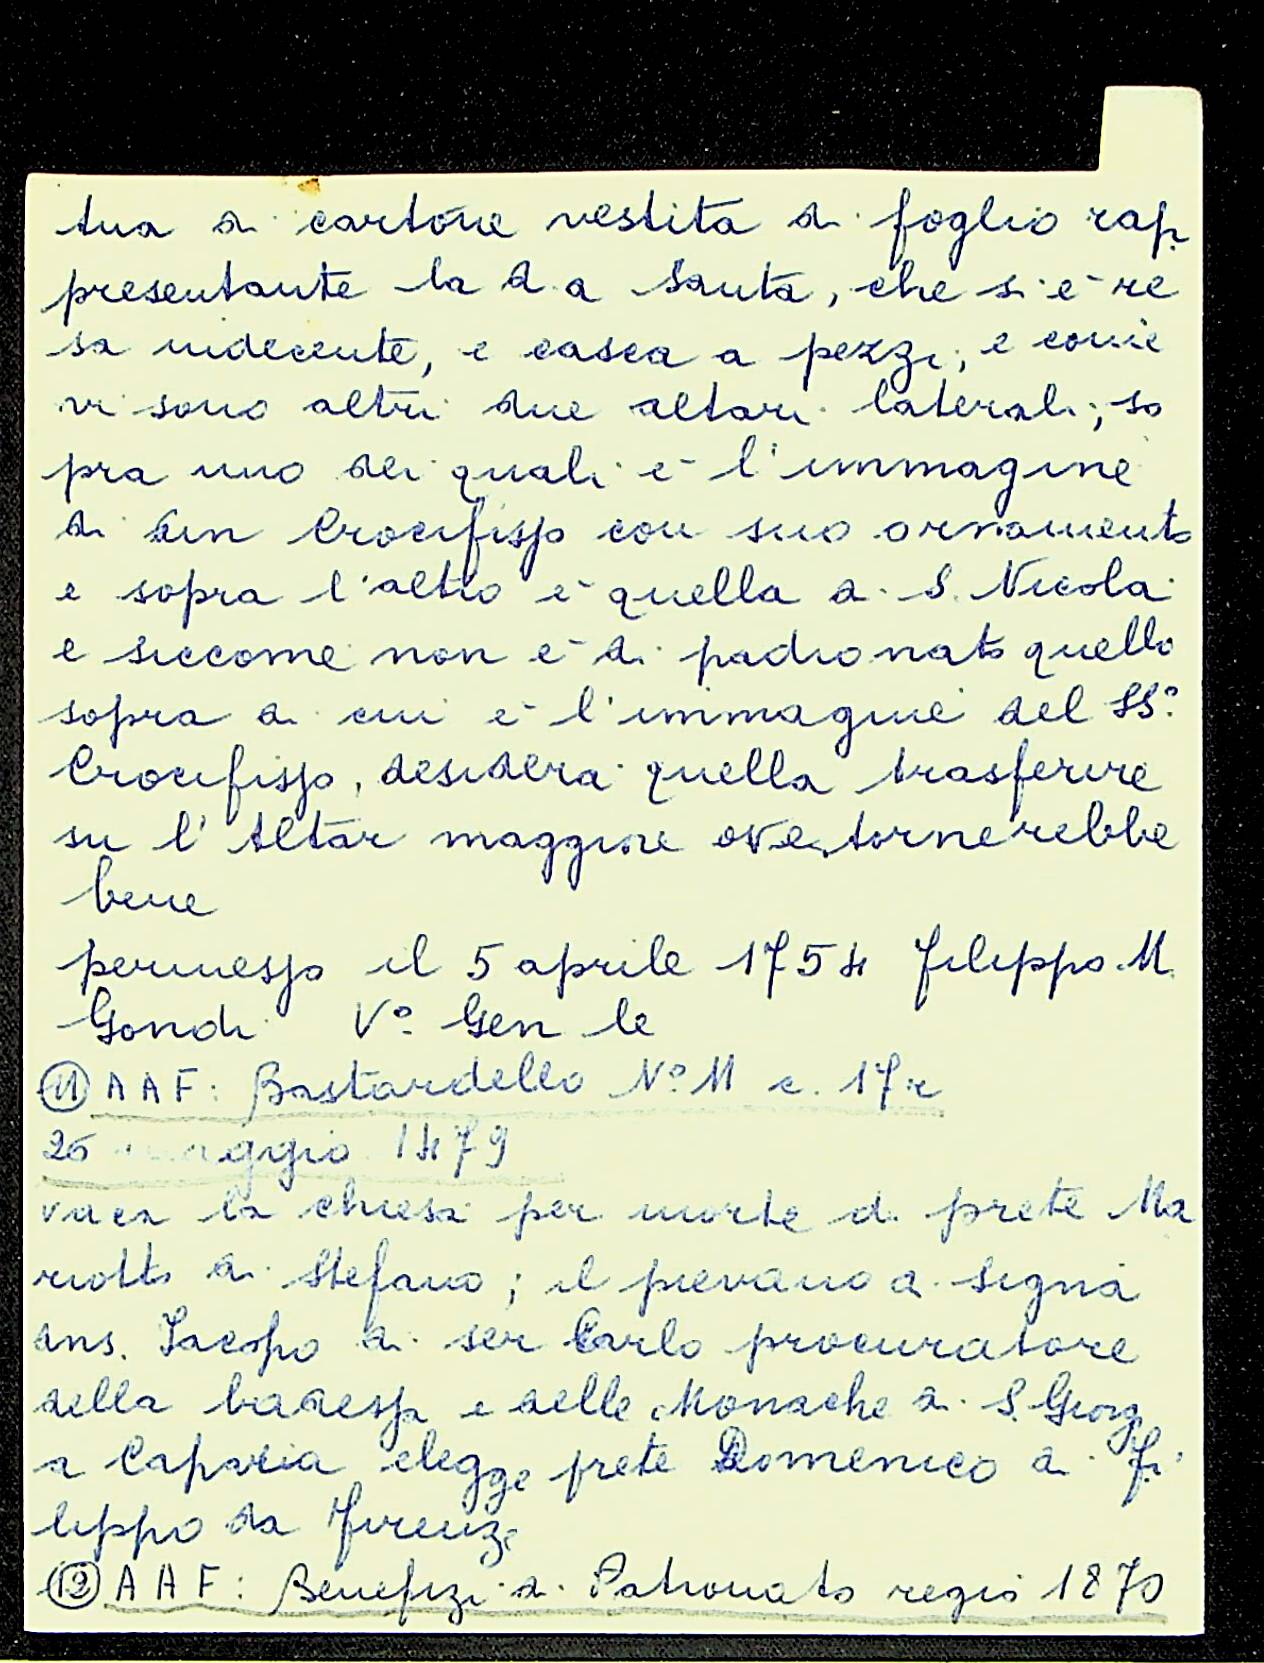 tua di cartone vestita di foglio rap
presentante la d.a Santa, che si è re
sa indecente, e casca a pezzi, e come
vi sono altri due altari laterali, so
pra uno dei quali è l'immagine
di un Crocifisso con suo ornamento
e sopra l'altro è quella di S. Nicola
e siccome non è di padronato quello
sopra di cui è l'immagine del SS.º
Crocifisso, desidera quella trasferire
su l'Altar maggiore ove tornerebbe
bene
permesso il 5 aprile 1754 Filippo M.
Gondi Vº Gen le
(11) AAF: Bastardello Nº 11 c. 17r
26 maggio 1479
vaca la chiesa per morte di prete Ma
riotto di Stefano; il pievano di Signa
ans. Iacopo di ser Carlo procuratore
della badessa e delle Monache di S. Giorg
a Caparia elegge prete Domenico di Fi
lippo da Firenze
(12) AAF: Benefizi di Patronato regio 1870